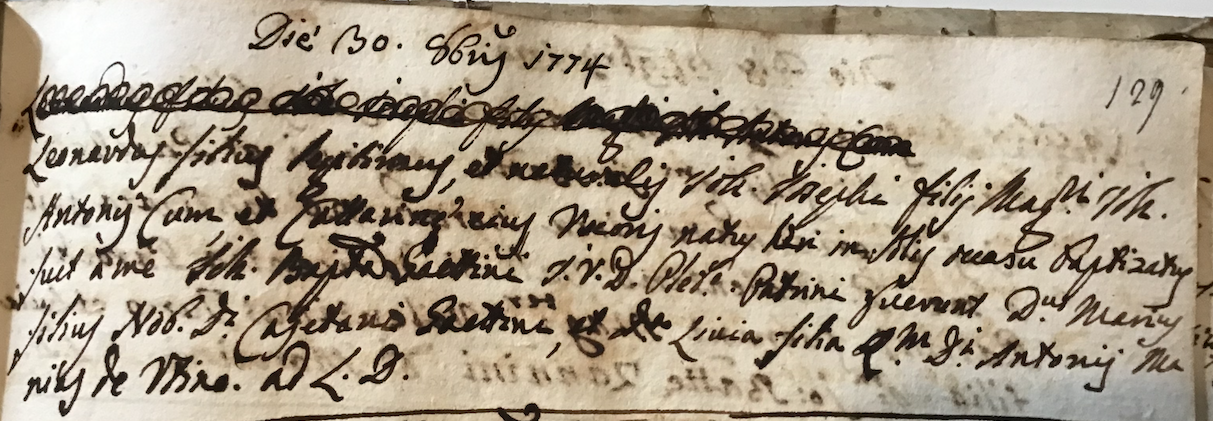 Die 30. 8bris 1774
129
Leonardus filius legitimus, et naturalis Joh. Josephi filij Mag.ri Joh.
Antonij Cum, et Cattarinæ eius Uxoris natus heri in Solis occasu baptizatus
fuit à me Joh. Bapta Gaettini J.V.D. Pleb.º Patrini fuerunt D.us Marius
filius Nob. D.i Cajetani Gaettini, et Livia filia q.m D.ni Antonij Ma
nijs de Utino. ad L. D.